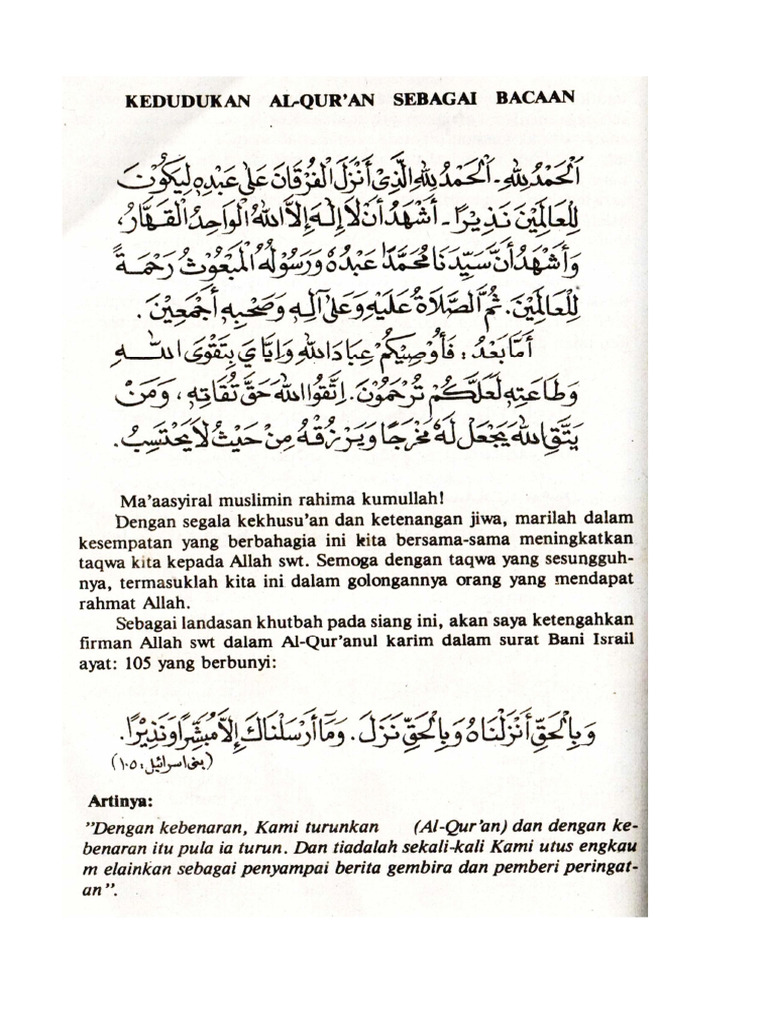 KEDUDUKAN AL-QUR'AN SEBAGAI BACAAN
اَلْحَمْدُ لِلّٰهِ - اَلْحَمْدُ لِلّٰهِ الَّذِى أَنْزَلَ الْفُرْقَانَ عَلَى عَبْدِهِ لِيَكُوْنَ
لِلْعَالَمِيْنَ نَذِيْرًا - أَشْهَدُ أَنْ لَا إِلٰهَ إِلَّا اللهُ الْوَاحِدُ الْقَهَّارُ،
وَأَشْهَدُ أَنَّ سَيِّدَنَا مُحَمَّدًا عَبْدُهُ وَرَسُوْلُهُ الْمَبْعُوْثُ رَحْمَةً
لِلْعَالَمِيْنَ. ثُمَّ الصَّلَاةُ عَلَيْهِ وَعَلَى آلِهِ وَصَحْبِهِ أَجْمَعِيْنَ.
أَمَّا بَعْدُ: فَأُوْصِيْكُمْ عِبَادَ اللهِ وَإِيَّايَ بِتَقْوَى اللهِ
وَطَاعَتِهِ لَعَلَّكُمْ تُرْحَمُوْنَ. اِتَّقُوا اللهَ حَقَّ تُقَاتِهِ، وَمَنْ
يَتَّقِ اللهَ يَجْعَلْ لَهُ مَخْرَجًا وَيَرْزُقْهُ مِنْ حَيْثُ لَا يَحْتَسِبُ.
Ma'aasyiral muslimin rahima kumullah!
Dengan segala kekhusu'an dan ketenangan jiwa, marilah dalam
kesempatan yang berbahagia ini kita bersama-sama meningkatkan
taqwa kita kepada Allah swt. Semoga dengan taqwa yang sesungguh-
nya, termasuklah kita ini dalam golongannya orang yang mendapat
rahmat Allah.
Sebagai landasan khutbah pada siang ini, akan saya ketengahkan
firman Allah swt dalam Al-Qur'anul karim dalam surat Bani Israil
ayat: 105 yang berbunyi:
وَبِالْحَقِّ أَنْزَلْنَاهُ وَبِالْحَقِّ نَزَلَ. وَمَا أَرْسَلْنَاكَ إِلَّا مُبَشِّرًا وَنَذِيْرًا.
(بنى اسرائيل: ١٠٥)
Artinya:
"Dengan kebenaran, Kami turunkan (Al-Qur'an) dan dengan ke-
benaran itu pula ia turun. Dan tiadalah sekali-kali Kami utus engkau
m elainkan sebagai penyampai berita gembira dan pemberi peringat-
an".